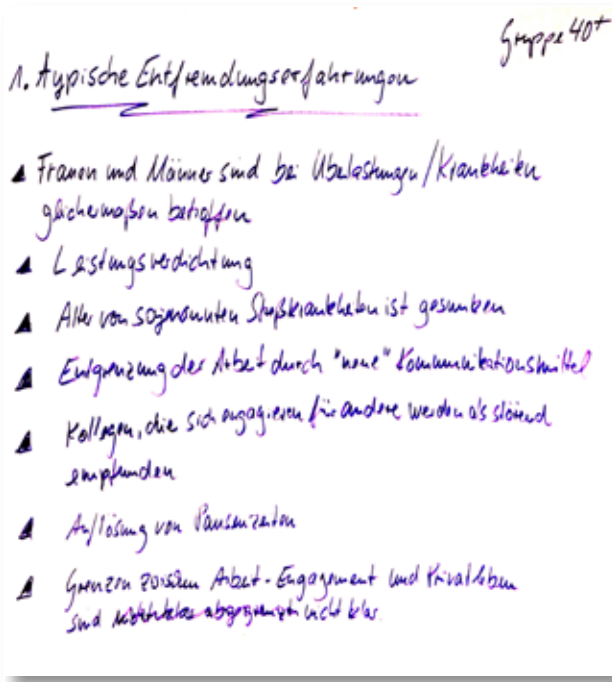 Gruppe 40+
1. Atypische Entfremdungserfahrungen
Frauen und Männer sind bei Überlastungen/Krankheiten
gleichermaßen betroffen
Leistungsverdichtung
Alter von sogenannten Streßkrankheiten ist gesunken
Entgrenzung der Arbeit durch "neue" Kommunikationsmittel
Kollegen, die sich engagieren für andere werden als störend
empfunden
Auflösung von Pausenzeiten
Grenzen zwischen Arbeit - Engagement und Privatleben
sind nicht klar.